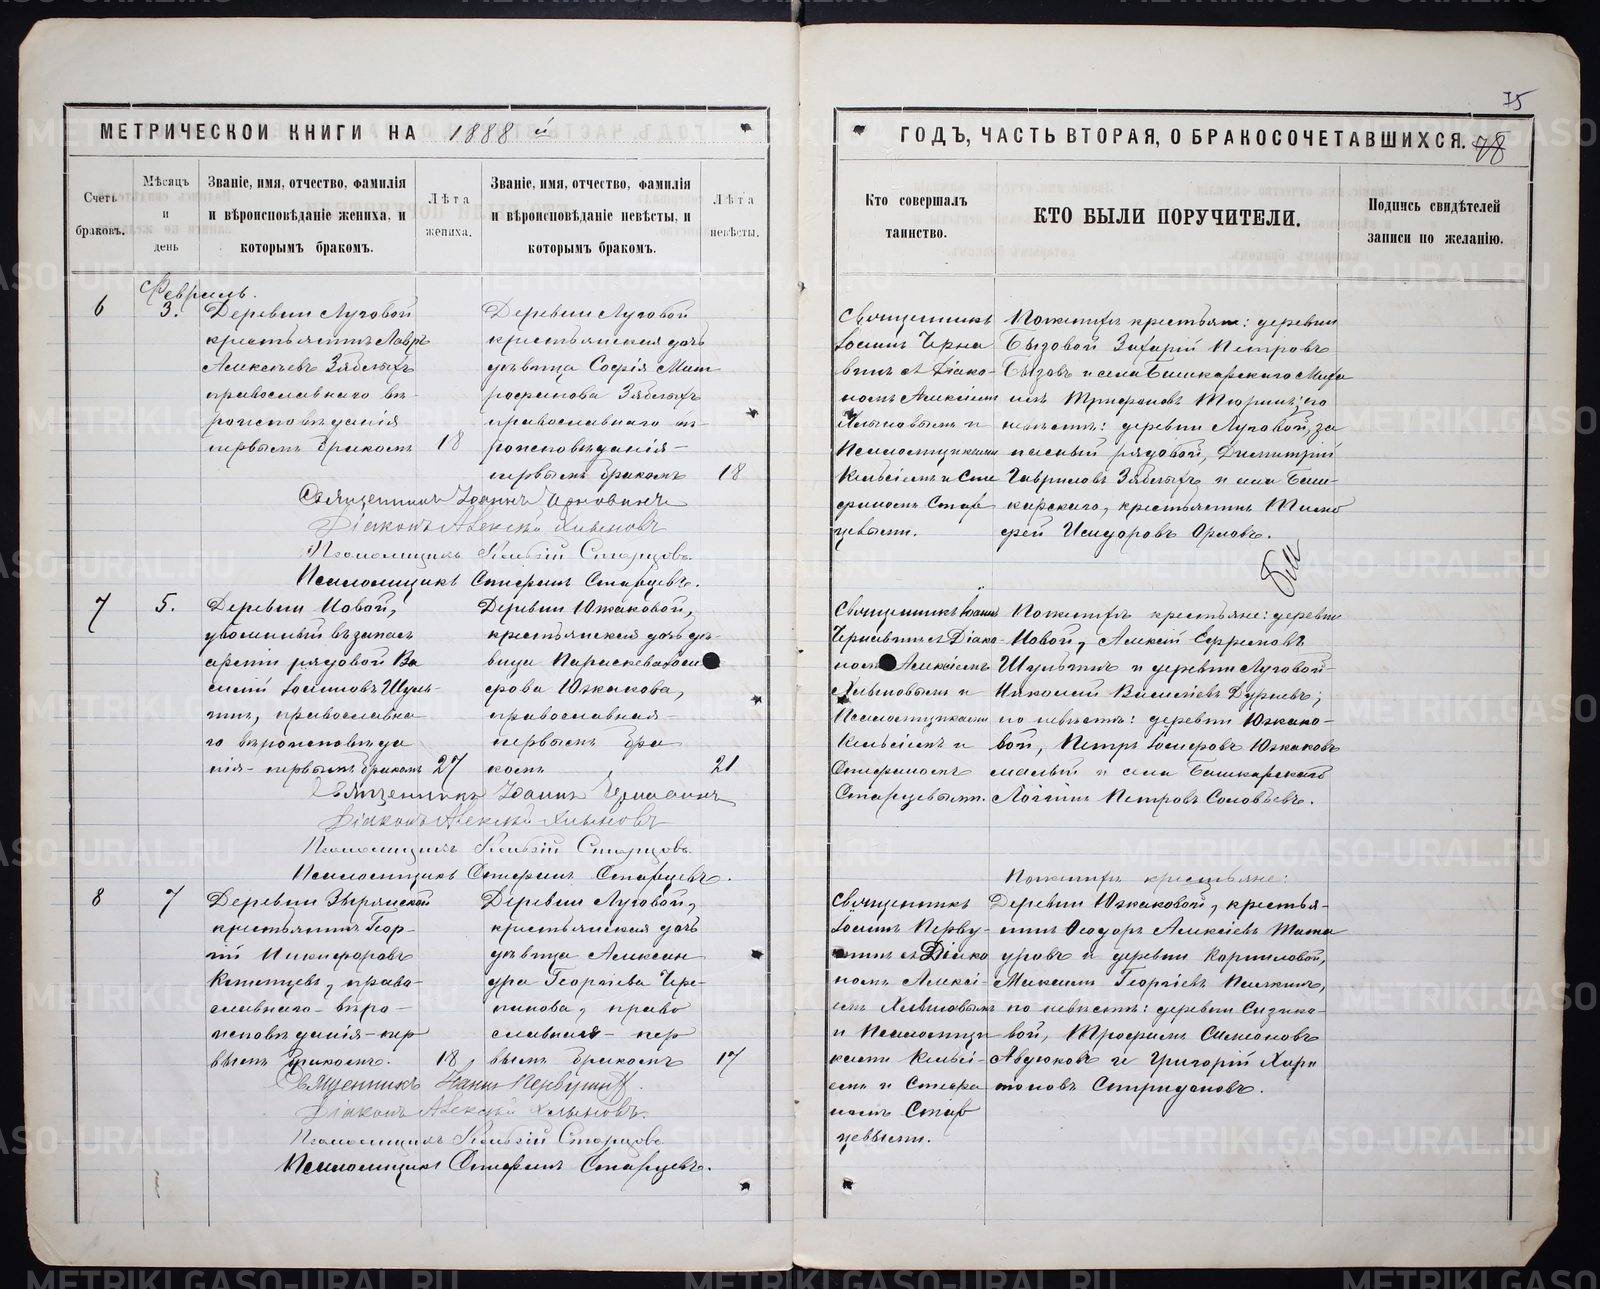 75
МЕТРИЧЕСКОЙ КНИГИ НА 1888 й
ГОДЪ, ЧАСТЬ ВТОРАЯ, О БРАКОСОЧЕТАВШИХСЯ. 78
Счетъ браковъ.
Мѣсяцъ и день
Званіе, имя, отчество, фамилія
и вѣроисповѣданіе жениха, и
которымъ бракомъ.
Лѣта
жениха.
Званіе, имя, отчество, фамилія
и вѣроисповѣданіе невѣсты, и
которымъ бракомъ.
Лѣта
невѣсты.
Кто совершалъ
таинство.
КТО БЫЛИ ПОРУЧИТЕЛИ.
Подпись свидѣтелей
записи по желанію.
Февраль.
6
3.
Деревни Луговой
крестьянинъ Лавръ
Алексѣевъ Зяблыхъ
православнаго вѣ-
роисповѣданія
первымъ бракомъ
18
Деревни Луговой
крестьянская дочь
дѣвица Софія Мит
рофанова Зяблыхъ
православнаго вѣ-
роисповѣданія-
первымъ бракомъ
18
Священникъ
Іоаннъ Черна
винъ съ Діако-
номъ Алексіем
Хлыновымъ и
Псаломщиками
Кельсіемъ и Сте
фаномъ Стар
цевыми.
По женихѣ крестьяне: деревни
Бызовой Захарій Петровъ
Бызовъ и села Башкарскаго Миха
илъ Трифоновъ Тюринъ; по
невѣстѣ: деревни Луговой, за
пасный рядовой, Димитрій
Гавриловъ Зяблыхъ и села Баш-
карскаго, крестьянинъ Тимо
фей Исидоровъ Орловъ.
Священникъ Іоаннъ Чернавинъ
Діаконъ Алексѣй Хлыновъ
Псаломщикъ Кельсій Старцовъ.
Псаломщикъ Стефанъ Старцевъ.
7
5.
Деревни Новой,
уволенный въ запасъ
арміи рядовой Ва
силій Іоанновъ Шуль-
гинъ, православна
го вѣроисповѣда
нія- первымъ бракомъ
27
Деревни Южаковой,
крестьянская дочь дѣ-
вица Параскева Іоси
фова Южакова,
православная-
первымъ бра
комъ
21
Священникъ Іоаннъ
Чернавинъ съ Діако-
номъ Алексіемъ
Хлыновымъ и
Псаломщиками
Кельсіемъ и
Стефаномъ
Старцевыми.
По женихѣ крестьяне: деревни
Новой, Алексій Ефремовъ
Шульгинъ и деревни Луговой-
Николай Василіевъ Дурневъ;
по невѣстѣ: деревни Южако-
вой, Петръ Іосифовъ Южаковъ
малый и села Башкарскаго
Логгинъ Петровъ Соловьевъ.
Священникъ Іоаннъ Чернавинъ
Діаконъ Алексѣй Хлыновъ
Псаломщикъ Кельсій Старцовъ.
Псаломщикъ Стефанъ Старцевъ.
8
7
Деревни Зырянской
крестьянинъ Геор-
гій Никифоровъ
православнаго- вѣро-
исповѣданія- пер
вымъ бракомъ.
18
Деревни Луговой,
крестьянская дочь
дѣвица Алексан
дра Георгіева Чере-
панова, право
славная- пер
вымъ бракомъ
17
Священникъ
Іоаннъ Перву-
шинъ съ Діако
номъ Алексі-
емъ Хлыновым
и Псаломщи
ками Кельсі-
емъ и Стефа
номъ Стар
цевыми.
По женихѣ крестьяне:
Деревни Южаковой, крестья-
нинъ Ѳеодоръ Алексіевъ Тата
уровъ и деревни Корниловой,
Максимъ Георгіевъ Пичкинъ,
по невѣстѣ: деревни Сизико-
вой, Трофимъ Симеоновъ
Авдюковъ и Григорій Хари
тоновъ Спиридоновъ.
Священникъ Іоаннъ Первушинъ.
Діаконъ Алексѣй Хлыновъ.
Псаломщикъ Кельсій Старцовъ
Псаломщикъ Стефанъ Старцевъ.
METRIKI.GASO-URAL.RU